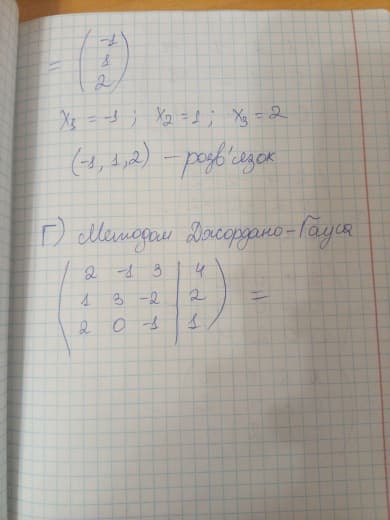 = ( -1
1
2 )
x₁ = -1 ; x₂ = 1 ; x₃ = 2
(-1, 1, 2) – розв'язок
Г) Методом Джордано-Гауса
( 2 -1 3 | 4
1 3 -2 | 2
2 0 -1 | 1 ) =